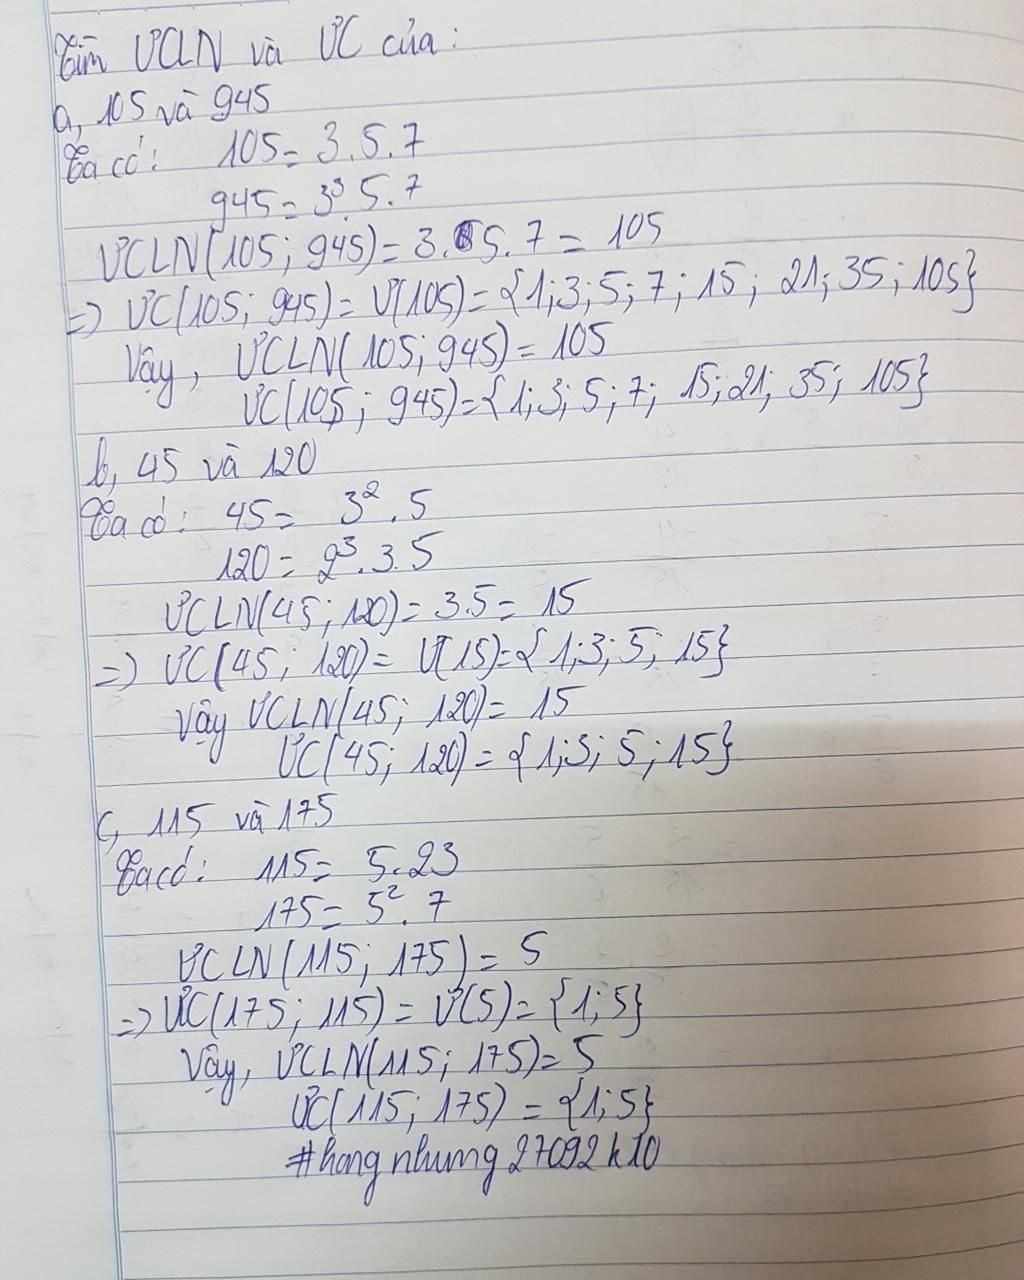 Tìm ƯCLN và ƯC của:
a, 105 và 945
Ta có: 105 = 3.5.7
945 = 3³.5.7
ƯCLN(105; 945) = 3.5.7 = 105
=> ƯC(105; 945) = Ư(105) = {1;3;5;7;15;21;35;105}
Vậy, ƯCLN(105; 945) = 105
ƯC(105; 945) = {1;3;5;7;15;21;35;105}
b, 45 và 120
Ta có: 45 = 3².5
120 = 2³.3.5
ƯCLN(45; 120) = 3.5 = 15
=> ƯC(45; 120) = Ư(15) = {1;3;5;15}
Vậy ƯCLN(45; 120) = 15
ƯC(45; 120) = {1;3;5;15}
c, 115 và 175
Ta có: 115 = 5.23
175 = 5².7
ƯCLN(115; 175) = 5
=> ƯC(175; 115) = Ư(5) = {1;5}
Vậy, ƯCLN(115; 175) = 5
ƯC(115; 175) = {1;5}
#hongnhung27092k10